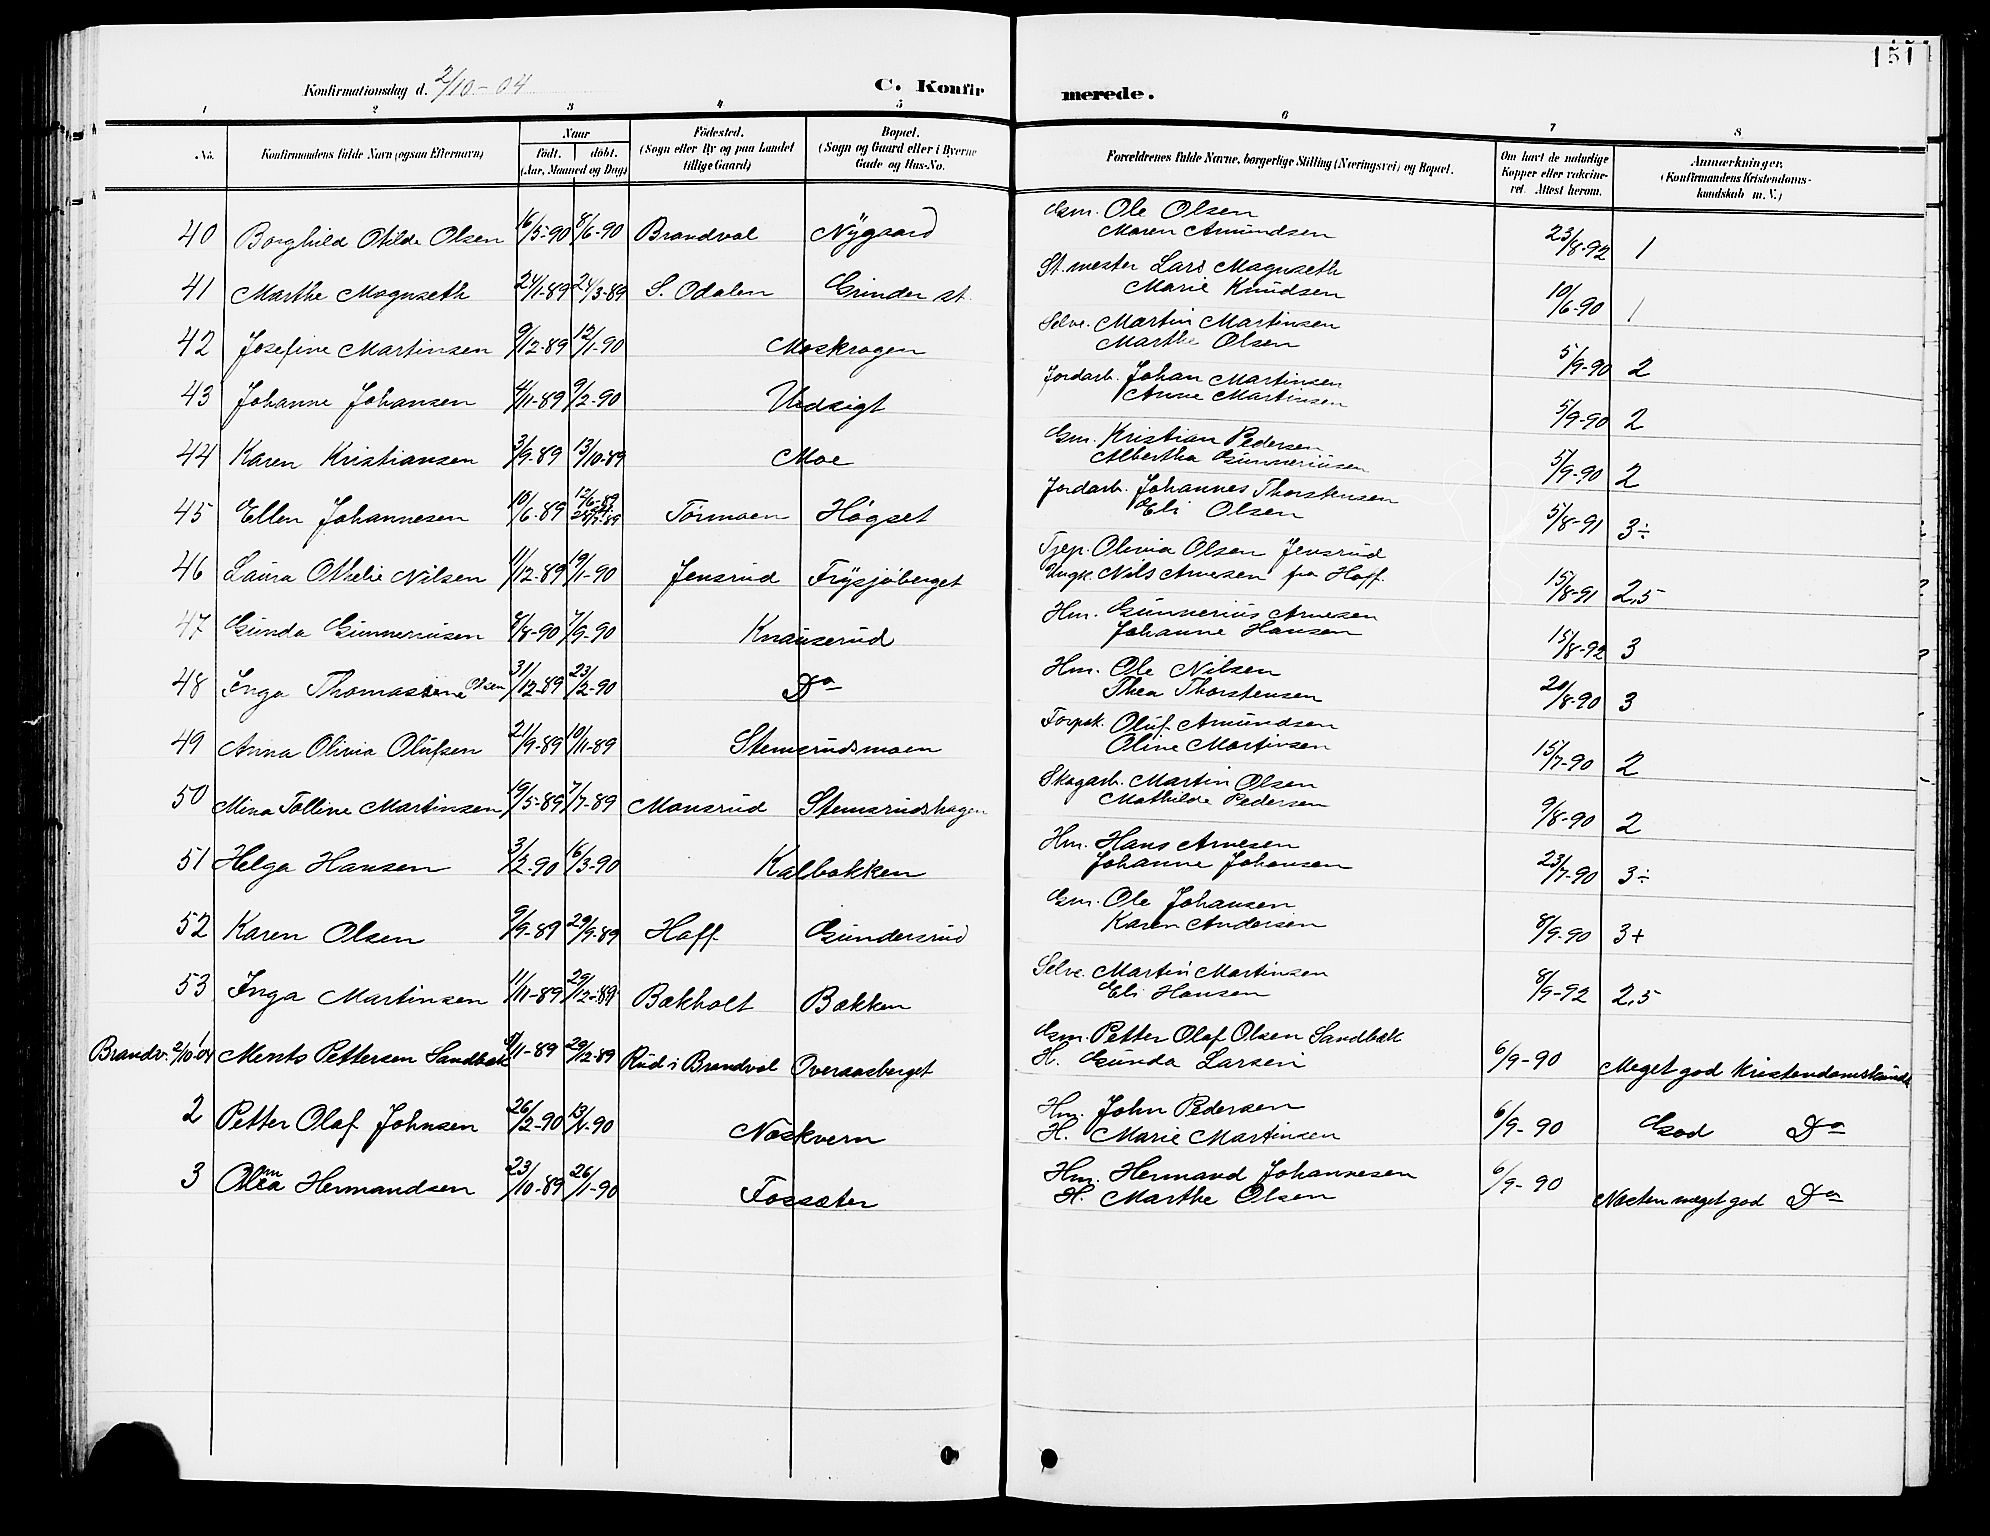 151
Konfirmationsdag d. 2/10-04
C. Konfirmerede.
1 2 3 4 5 6 7 8
No. Konfirmandens fulde Navn (ogsaa Efternavn) Naar Födt. döbt. (Aar, Maaned og Dag) Födested. (Sogn eller By og paa Landet tillige Gaard) Bopæl. (Sogn og Gaard eller i Byerne Gade og Hus-No. Forældrenes fulde Navne, borgerlige Stilling (Næringsvei) og Bopæl. Om havt de naturlige Kopper eller vakcineret. Attest herom. Anmærkninger. (Konfirmandens Kristendomskundskab m. V.)
40 Borghild Otilde Olsen 16/5-90 8/6-90 Brandval Nygaard Gm. Ole Olsen Maren Amundsen 23/8-92 1
41 Marthe Magnseth 24/3-89 S. Odalen Grinder st. St. mester Lars Magnseth Marie Knudsen 10/6-90 1
42 Josefine Martinsen 9/12-89 12/1-90 Moskragen Selve. Martin Martinsen Marthe Olsen 5/9-90 2
43 Johanne Johansen 4/11-89 9/2-90 Udsigt Jordarb. Johan Martinsen Anne Martinsen 5/9-90 2
44 Karen Kristiansen 3/9-89 13/10-89 Moe Gm. Kristian Pedersen Albertha Gunneriusen 5/9-90 2
45 Ellen Johannesen 10/6-89 Tørmoen Høgset Jordarb. Johannes Thorstensen Eli Olsen 5/8-91 3÷
46 Laura Othelie Nilsen 11/12-89 19/1-90 Jensrud Frysjøberget Tjep. Olivia Olsen Jensrud Ungk. Nils Arnesen fra Hoff. 15/8-91 2,5
47 Gunda Gunneriusen 8/8-90 7/9-90 Knauserud Hm. Gunnerius Arnesen Johanne Hansen 15/8-92 3
48 Inga Thomasine Olsen 31/12-89 23/2-90 Do Hm. Ole Nilsen Thea Thorstensen 20/8-90 3
49 Anna Olivia Olufsen 21/9-89 10/11-89 Stemsrudsmoen Forpak. Oluf Amundsen Oline Martinsen 15/7-90 2
50 Mina Tolline Martinsen 19/5-89 7/7-89 Monsrud Stemsrudshagen Skogarb. Martin Olsen Mathilde Pedersen 9/8-90 2
51 Helga Hansen 3/2-90 16/3-90 Kalbakken Hm. Hans Arnesen Johanne Johansen 23/7-90 3÷
52 Karen Olsen 9/9-89 29/9-89 Hoff Gundersrud Gm. Ole Johansen Karen Andersen 8/9-90 3+
53 Inga Martinsen 11/11-89 29/12-89 Bækholt Bækken Selve. Martin Martinsen Eli Hansen 8/9-92 2,5
Brandv. 2/10-04 1 Ments Pettersen Sandbæk 29/12-89 Rud i Brandval Overaasberget Gm. Petter Olaf Olsen Sandbæk H. Gunda Larsen 6/9-90 Meget god Kristendomskunds
2 Petter Olaf Johnsen 26/2-90 13/4-90 Noskvern Hm. John Pedersen H. Marie Martinsen 6/9-90 God Do
3 Hermandsen 23/10-89 26/1-90 Fossæter Hm. Hermand Johannesen H. Marthe Olsen 6/9-90 Næsten meget god Do